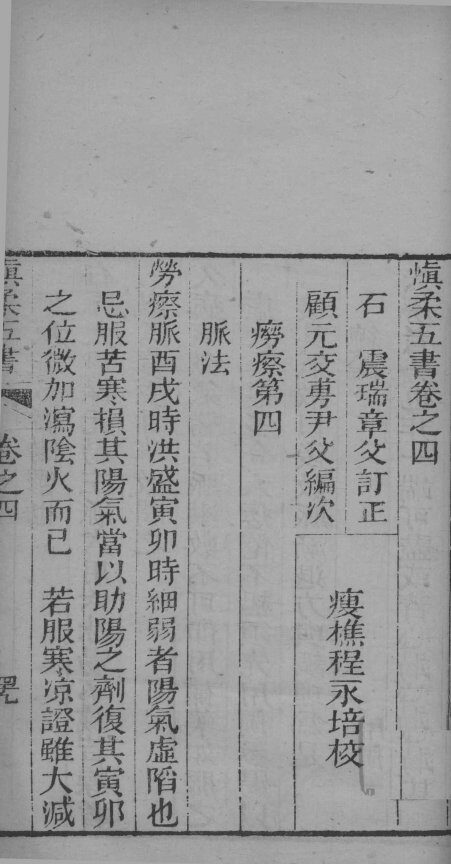 慎柔五書卷之四
石　震瑞章父訂正
顧元交專尹父編次
瘦樵程永培校
癆瘵第四
脈法
勞瘵脈酉戌時洪盛寅卯時細弱者陽氣虛陷也
忌服苦寒損其陽氣當以助陽之劑復其寅卯
之位微加瀉陰火而已　若服寒涼證雖大減
慎柔五書　卷之四